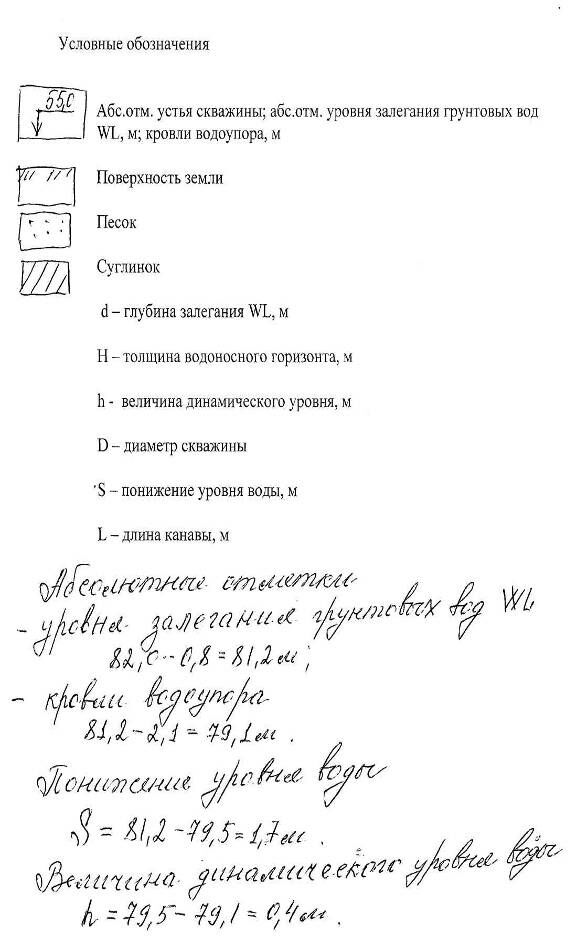 Условные обозначения
55,0
Абс.отм. устья скважины; абс.отм. уровня залегания грунтовых вод
WL, м; кровли водоупора, м
Поверхность земли
Песок
Суглинок
d – глубина залегания WL, м
H – толщина водоносного горизонта, м
h - величина динамического уровня, м
D – диаметр скважины
S – понижение уровня воды, м
L – длина канавы, м
Абсолютные отметки
- уровня залегания грунтовых вод WL
82,0 - 0,8 = 81,2 м;
- кровли водоупора
81,2 - 2,1 = 79,1 м.
Понижение уровня воды
S = 81,2 - 79,5 = 1,7 м.
Величина динамического уровня воды
h = 79,5 - 79,1 = 0,4 м.